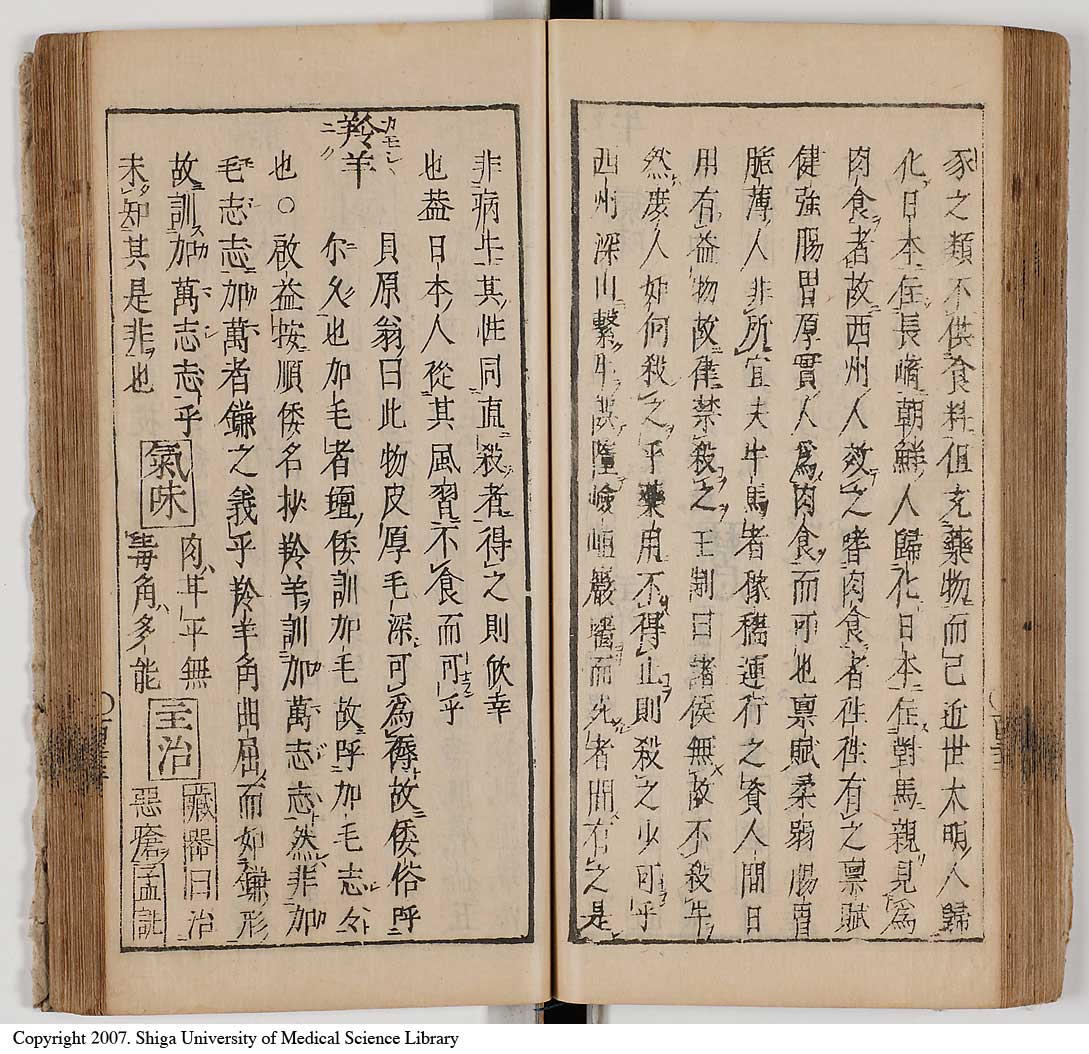 豕之類不供食料但充藥物而已近世大明人歸
化日本在長崎朝鮮人歸化日本在對馬親見為
肉食者故西州人效之嗜肉食者往往有之稟賦
健強腸胃厚實人為肉食而可也稟賦柔弱腸胃
脆薄人非所宜夫牛馬者稼穡運行之資人間日
用有益物故律禁殺之王制曰諸侯無故不殺牛
然庶人如何殺之乎藥用不得止則殺之少可乎
西州深山繫牛誤墮嶮岨巖墻而死者間有之是
非病牛其性同直殺者得之則欣幸
也蓋日本人從其風習不食而可乎
羚羊 カモシヽ ニク
貝原翁曰此物皮厚毛深可為褥故倭俗呼
尓久也加毛者氈倭訓加毛故呼加毛志々
也○啟益按順倭名抄羚羊訓加萬志志然非加
毛志志加萬者鎌之義乎羚羊角曲屈而如鎌形
故訓加萬志志乎
未知其是非也
氣味 肉甘平無
毒角多能
主治 藏器曰治
惡瘡孟詵